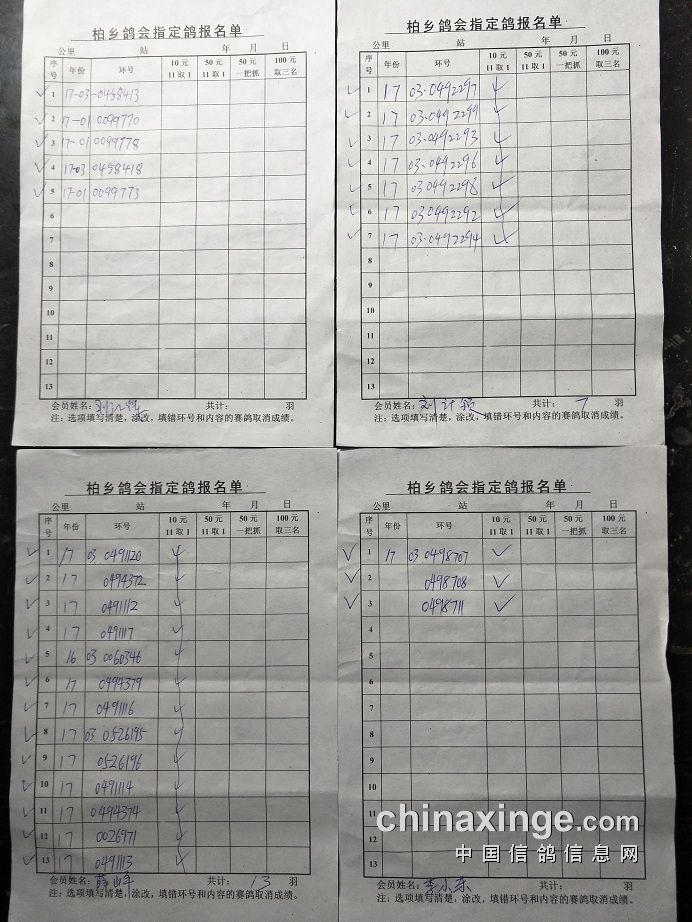 柏乡鸽会指定鸽报名单
公里 站 年 月 日
序号 年份 环号 10元 11取1 50元 11取1 50元 一把抓 100元 取三名
1 17-03-0458413
2 17-01 0099770
3 17-01 0099778
4 17-03 0458418
5 17-01 0099773
6
7
8
9
10
11
12
13
会员姓名: 共计: 羽
注: 选项填写清楚, 涂改, 填错环号和内容的赛鸽取消成绩。
柏乡鸽会指定鸽报名单
公里 站 年 月 日
序号 年份 环号 10元 11取1 50元 11取1 50元 一把抓 100元 取三名
1 17 03-0492297 ✓
2 17 03-0492299 ✓
3 17 03-0492293 ✓
4 17 03-0492296 ✓
5 17 03-0492298 ✓
6 17 03-0492292 ✓
7 17 03-0492294 ✓
8
9
10
11
12
13
会员姓名: 刘计锁 共计: 7 羽
注: 选项填写清楚, 涂改, 填错环号和内容的赛鸽取消成绩。
柏乡鸽会指定鸽报名单
公里 站 年 月 日
序号 年份 环号 10元 11取1 50元 11取1 50元 一把抓 100元 取三名
1 17 03 0491120 ✓
2 17 0494372 ✓
3 17 0491112 ✓
4 17 0491117 ✓
5 16 03 0060346 ✓
6 17 0494379 ✓
7 17 0491116 ✓
8 17 03 0526195 ✓
9 17 0526196 ✓
10 17 0491114 ✓
11 17 0494374 ✓
12 17 0026971 ✓
13 17 0491113 ✓
会员姓名: 共计: 13 羽
注: 选项填写清楚, 涂改, 填错环号和内容的赛鸽取消成绩。
柏乡鸽会指定鸽报名单
公里 站 年 月 日
序号 年份 环号 10元 11取1 50元 11取1 50元 一把抓 100元 取三名
1 17 03 0498707 ✓
2 0498708 ✓
3 0498711 ✓
4
5
6
7
8
9
10
11
12
13
会员姓名: 李小东 共计: 羽
注: 选项填写清楚, 涂改, 填错环号和内容的赛鸽取消成绩。
chinaxinge.com
中国信鸽信息网